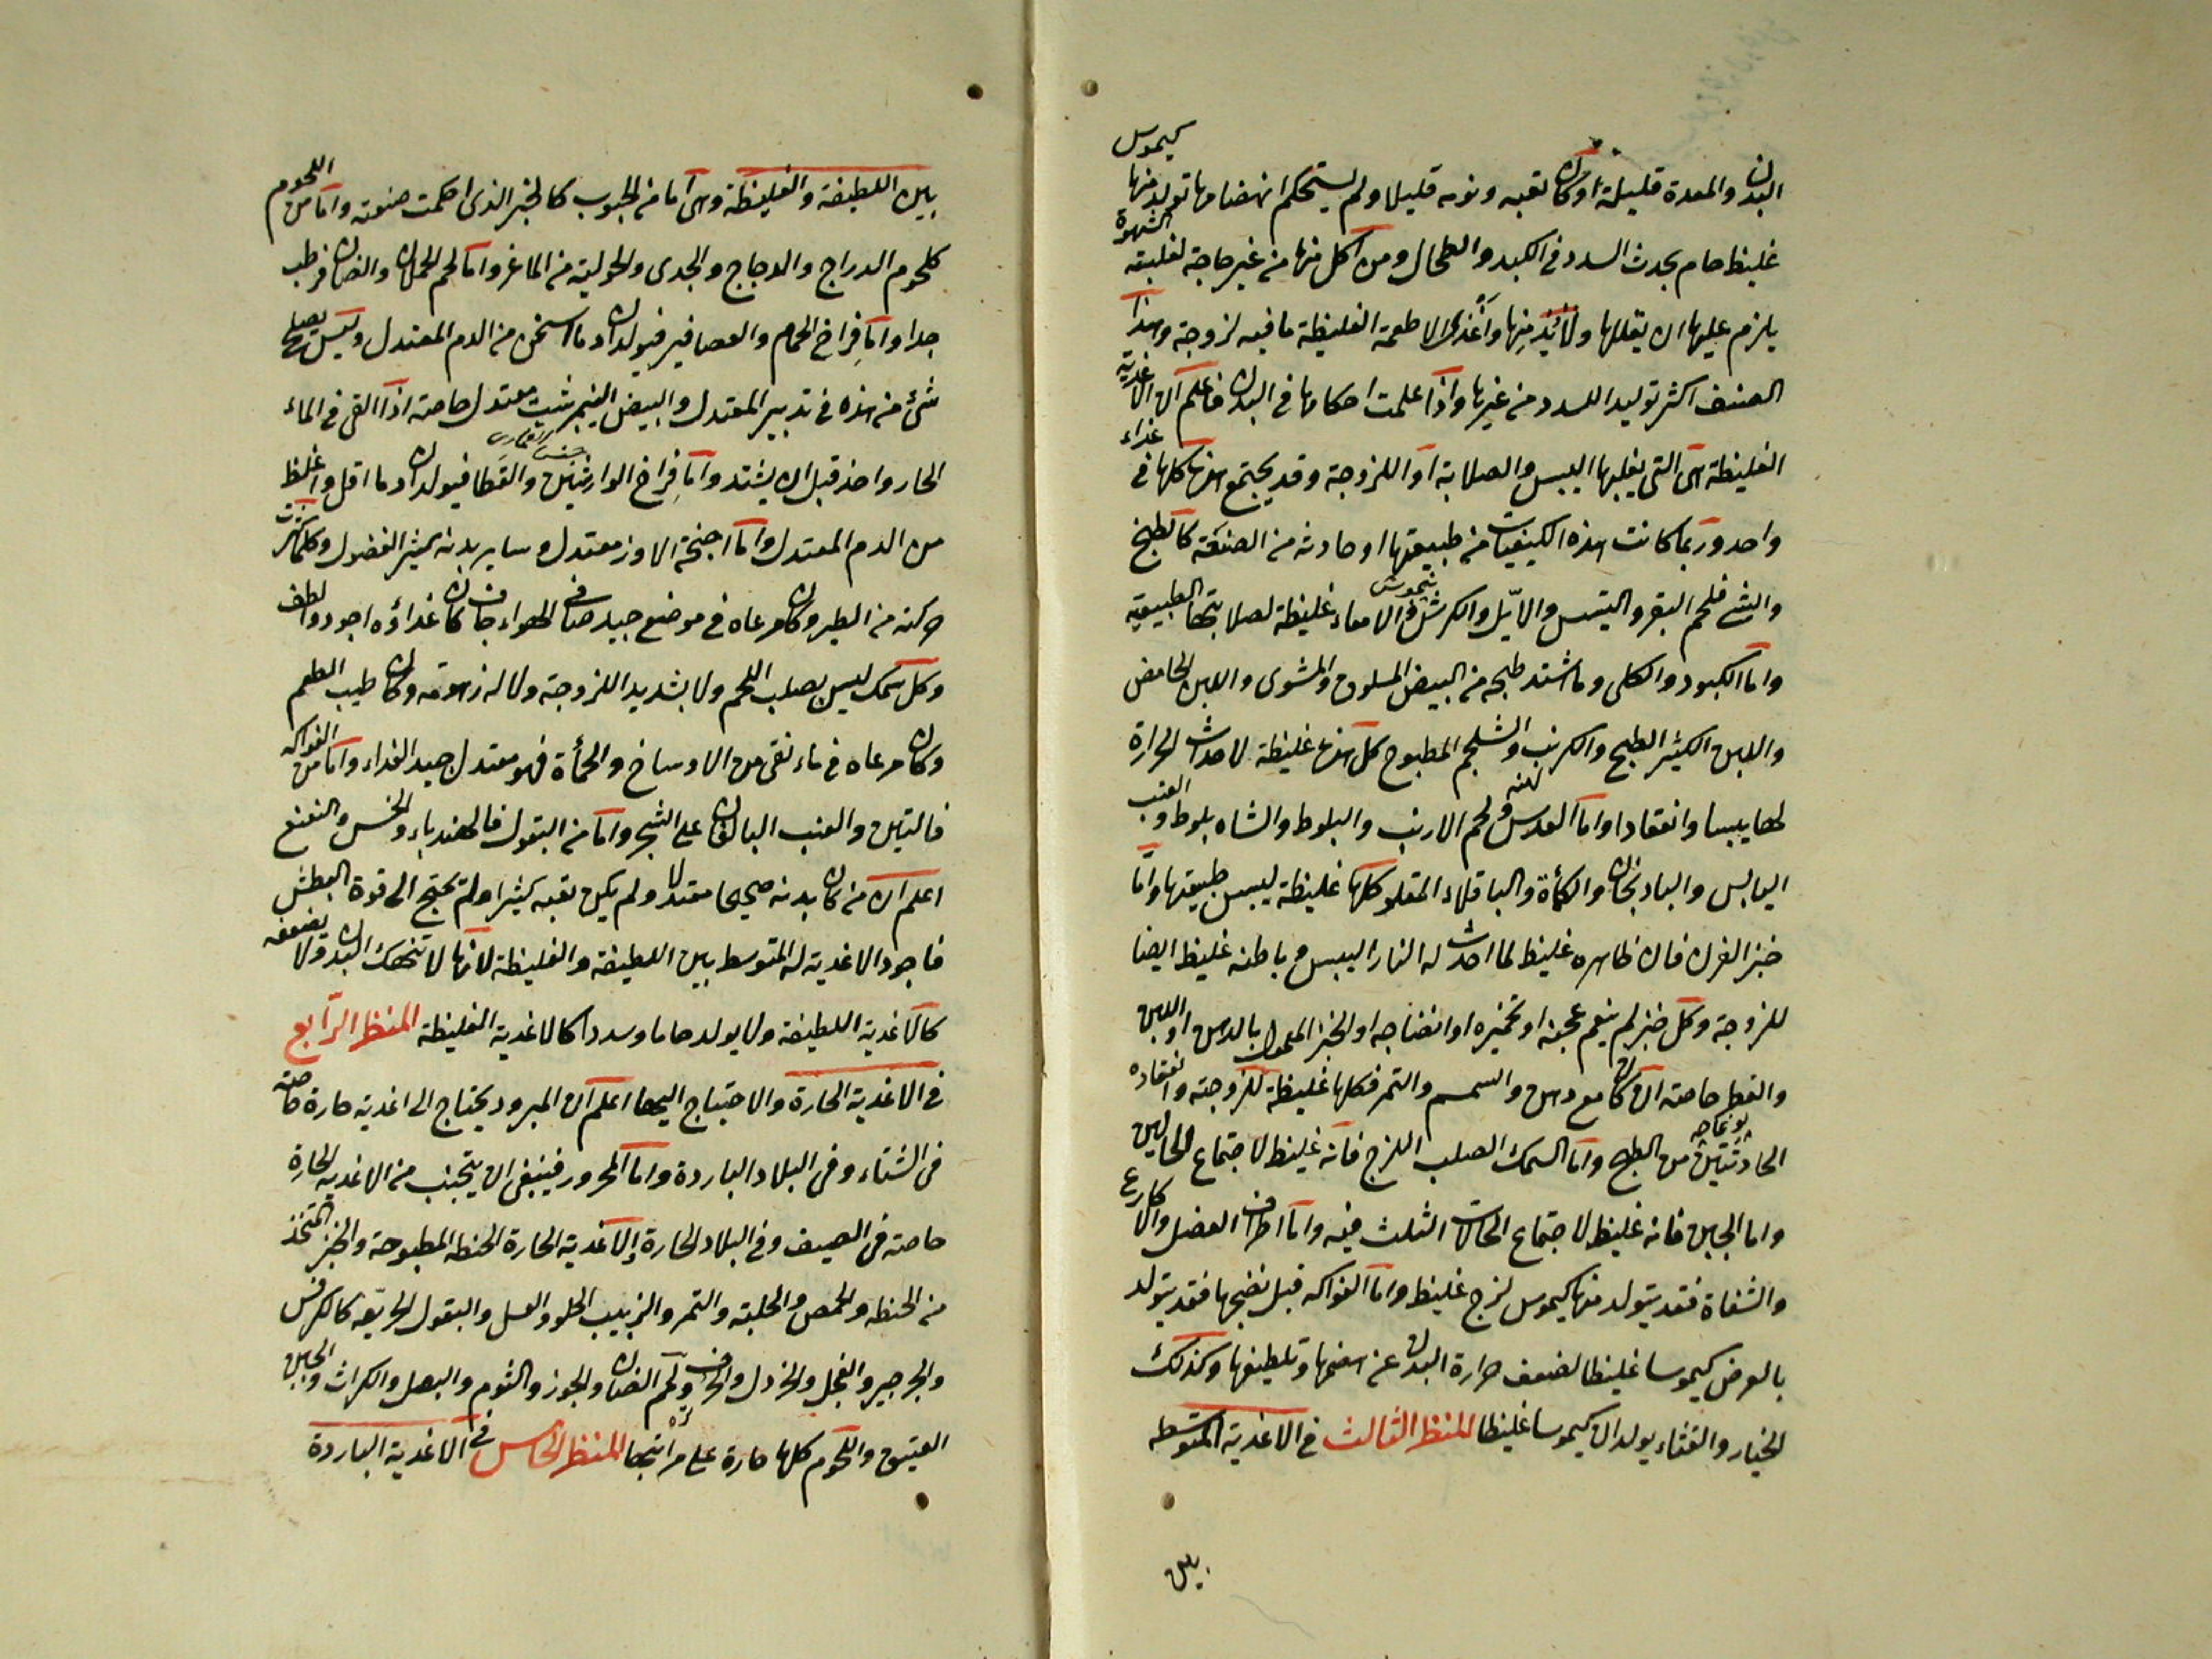 البدن والمعدة قليلة او كان تعبه ونومه قليلا ولم يستحكم انهضامها تولد منها كيموس
غليظ خام يحدث السدد في الكبد والطحال ومن اكل منها من غير حاجة لغلبة الشهوة
يلزم عليها ان يقللها ولا يزيد منها واغذى الاطعمة الغليظة ما فيه لزوجة وهذا
الصنف اكثر توليدا للسدد من غيرها واذا علمت احكامها في البدن فاعلم ان الاغذية
الغليظة هى التى يغلبها اليبس والصلابة او اللزوجة وقد يجتمع هذه كلها في غذاء
واحد وربما كانت هذه الكيفيات من طبيعتها او حادثه من الصنعة كالطبخ
والشي فلحم البقر والتيس والايّل والكرش والامعاء غليظة لصلابتها الطبيعية
واما الكبود والكلى وما اشتد طبخه من البيض المسلوق والمشوى واللبن الحامض
واللبن الكثير الطبخ والكرنب والشلجم المطبوخ كل هذه غليظة لاحداث الحرارة
لها يبسا وانعقادا واما العدس ولحم الارنب والبلوط والشاه بلوط والعنب
اليابس والبادنجان والكمأة والباقلاء المقلو كلها غليظة ليبس طبيعتها وامّا
خبز الفرن فان ظاهره غليظ لما احدث له النار اليبس وباطنه غليظ ايضا
للزوجة وكل خبز لم ينعم عجنه او تخميره او انضاجه او الخبز المعمول بالدهن او اللبن
والفطر خاصة ان كان مع دهن والسمسم والتمر فكلها غليظة للزوجته وانعقاده
الحادثتين من الطبخ واما السمك الصلب اللزج فانه غليظ لاجتماع الحالين
واما الجبن فانه غليظ لاجتماع الحالات الثلث فيه واما اطراف العضل والاكارع
والشفاة فقد يتولد منها كيموس لزج غليظ واما الفواكه قبل نضجها فقد يتولد
بالعرض كيموسا غليظا لضعف حرارة البدن عن هضمها وتلطيفها وكذلك
الخيار والقثاء يولدان كيموسا غليظا المنظر الثالث في الاغدية المتوسطه
بين
بين اللطيفة والغليظة وهى اما من الحبوب كالخبز الذى احكمت صنعته واما من اللحوم
كلحوم الدراج والدجاج والجدى والحولية من الماعز واما لحم الحملان والضان فرطب
جدا واما فراخ الحمام والعصافير فيولدان دما اسخن من الدم المعتدل وليس يصلح
شئ من هذه في تدبير المعتدل والبيض النيمرشت معتدل خاصة اذا القى في الماء
الحار واخذ قبل ان يشتد واما فراخ الوارشين والقطا فيولدان دما اقل واغلظ
من الدم المعتدل واما اجنحة الاوز معتدل وساير بدنه كثير الفضول وكلما كثرت
حركته من الطير وكان مرعاه في موضع جيد صافى الهواء جاف كان غداؤه اجود والطف
وكل سمك ليس بصلب اللحم ولا بشديد اللزوجة ولا له زهومة وكان طيب الطعم
وكان مرعاه في ماء نقى من الاوساخ والحمأة فهو معتدل جيد الغداء واما من الفواكه
فالتين والعنب البالغان على الشجر واما من البقول فالهندباء والخس والنعنع
اعلم ان من كان بدنه صحيحا معتدلا ولم يكن تعبه كثيرا ولم يحتج الى قوة البطش
فاجود الاغدية له المتوسط بين اللطيفة والغليظة لانها لا تنهك البدن ولا يضعفه
كالاغدية اللطيفة ولا يولد خاما وسددا كالاغدية الغليظة المنظر الرّابع
في الاغدية الحارة والاحتياج اليها اعلم ان المبرود يحتاج الى اغدية حارة خاصة
في الشتاء وفي البلاد الباردة واما المحرور فينبغى ان يتجنب من الاغدية الحارة
خاصة في الصيف وفي البلاد الحارة الاغدية الحارة الحنطه المطبوخة والخبز المتخذ
من الحنطه والحمص والحلبة والتمر والزبيب الحلو والعسل والبقول الحريفه كالكرفس
والجرجير والفجل والخردل والحرف ولحم الضان والجوز والثوم والبصل والكراث والجبن
العتيق واللحوم كلها حارة على مراتبها المنظر الخامس في الاغدية الباردة